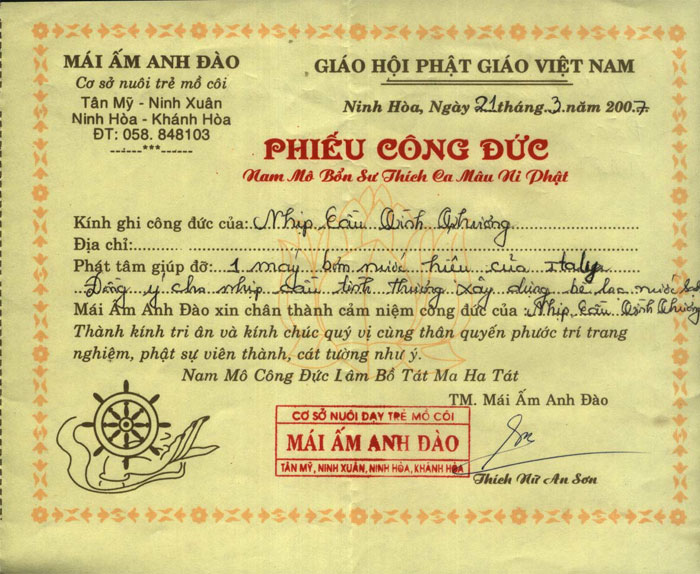 MÁI ẤM ANH ĐÀO
Cơ sở nuôi trẻ mồ côi
Tân Mỹ - Ninh Xuân
Ninh Hòa - Khánh Hòa
ĐT: 058. 848103
------***------
GIÁO HỘI PHẬT GIÁO VIỆT NAM
Ninh Hòa, Ngày 21 tháng 3 năm 2007
PHIẾU CÔNG ĐỨC
Nam Mô Bổn Sư Thích Ca Mâu Ni Phật
Kính ghi công đức của: Nhịp Cầu Tình Thương
Địa chỉ:
Phát tâm giúp đỡ: 1 máy bơm nước hiệu của Italy
Đồng ý cho nhịp cầu tình thương xây dựng bể lọc nước
Mái Ấm Anh Đào xin chân thành cảm niệm công đức của: Nhịp Cầu Tình Thương
Thành kính tri ân và kính chúc quý vị cùng thân quyến phước trí trang
nghiêm, phật sự viên thành, cát tường như ý.
Nam Mô Công Đức Lâm Bồ Tát Ma Ha Tát
TM. Mái Ấm Anh Đào
CƠ SỞ NUÔI DẠY TRẺ MỒ CÔI
MÁI ẤM ANH ĐÀO
TÂN MỸ, NINH XUÂN, NINH HÒA, KHÁNH HÒA
Thích Nữ An Sơn